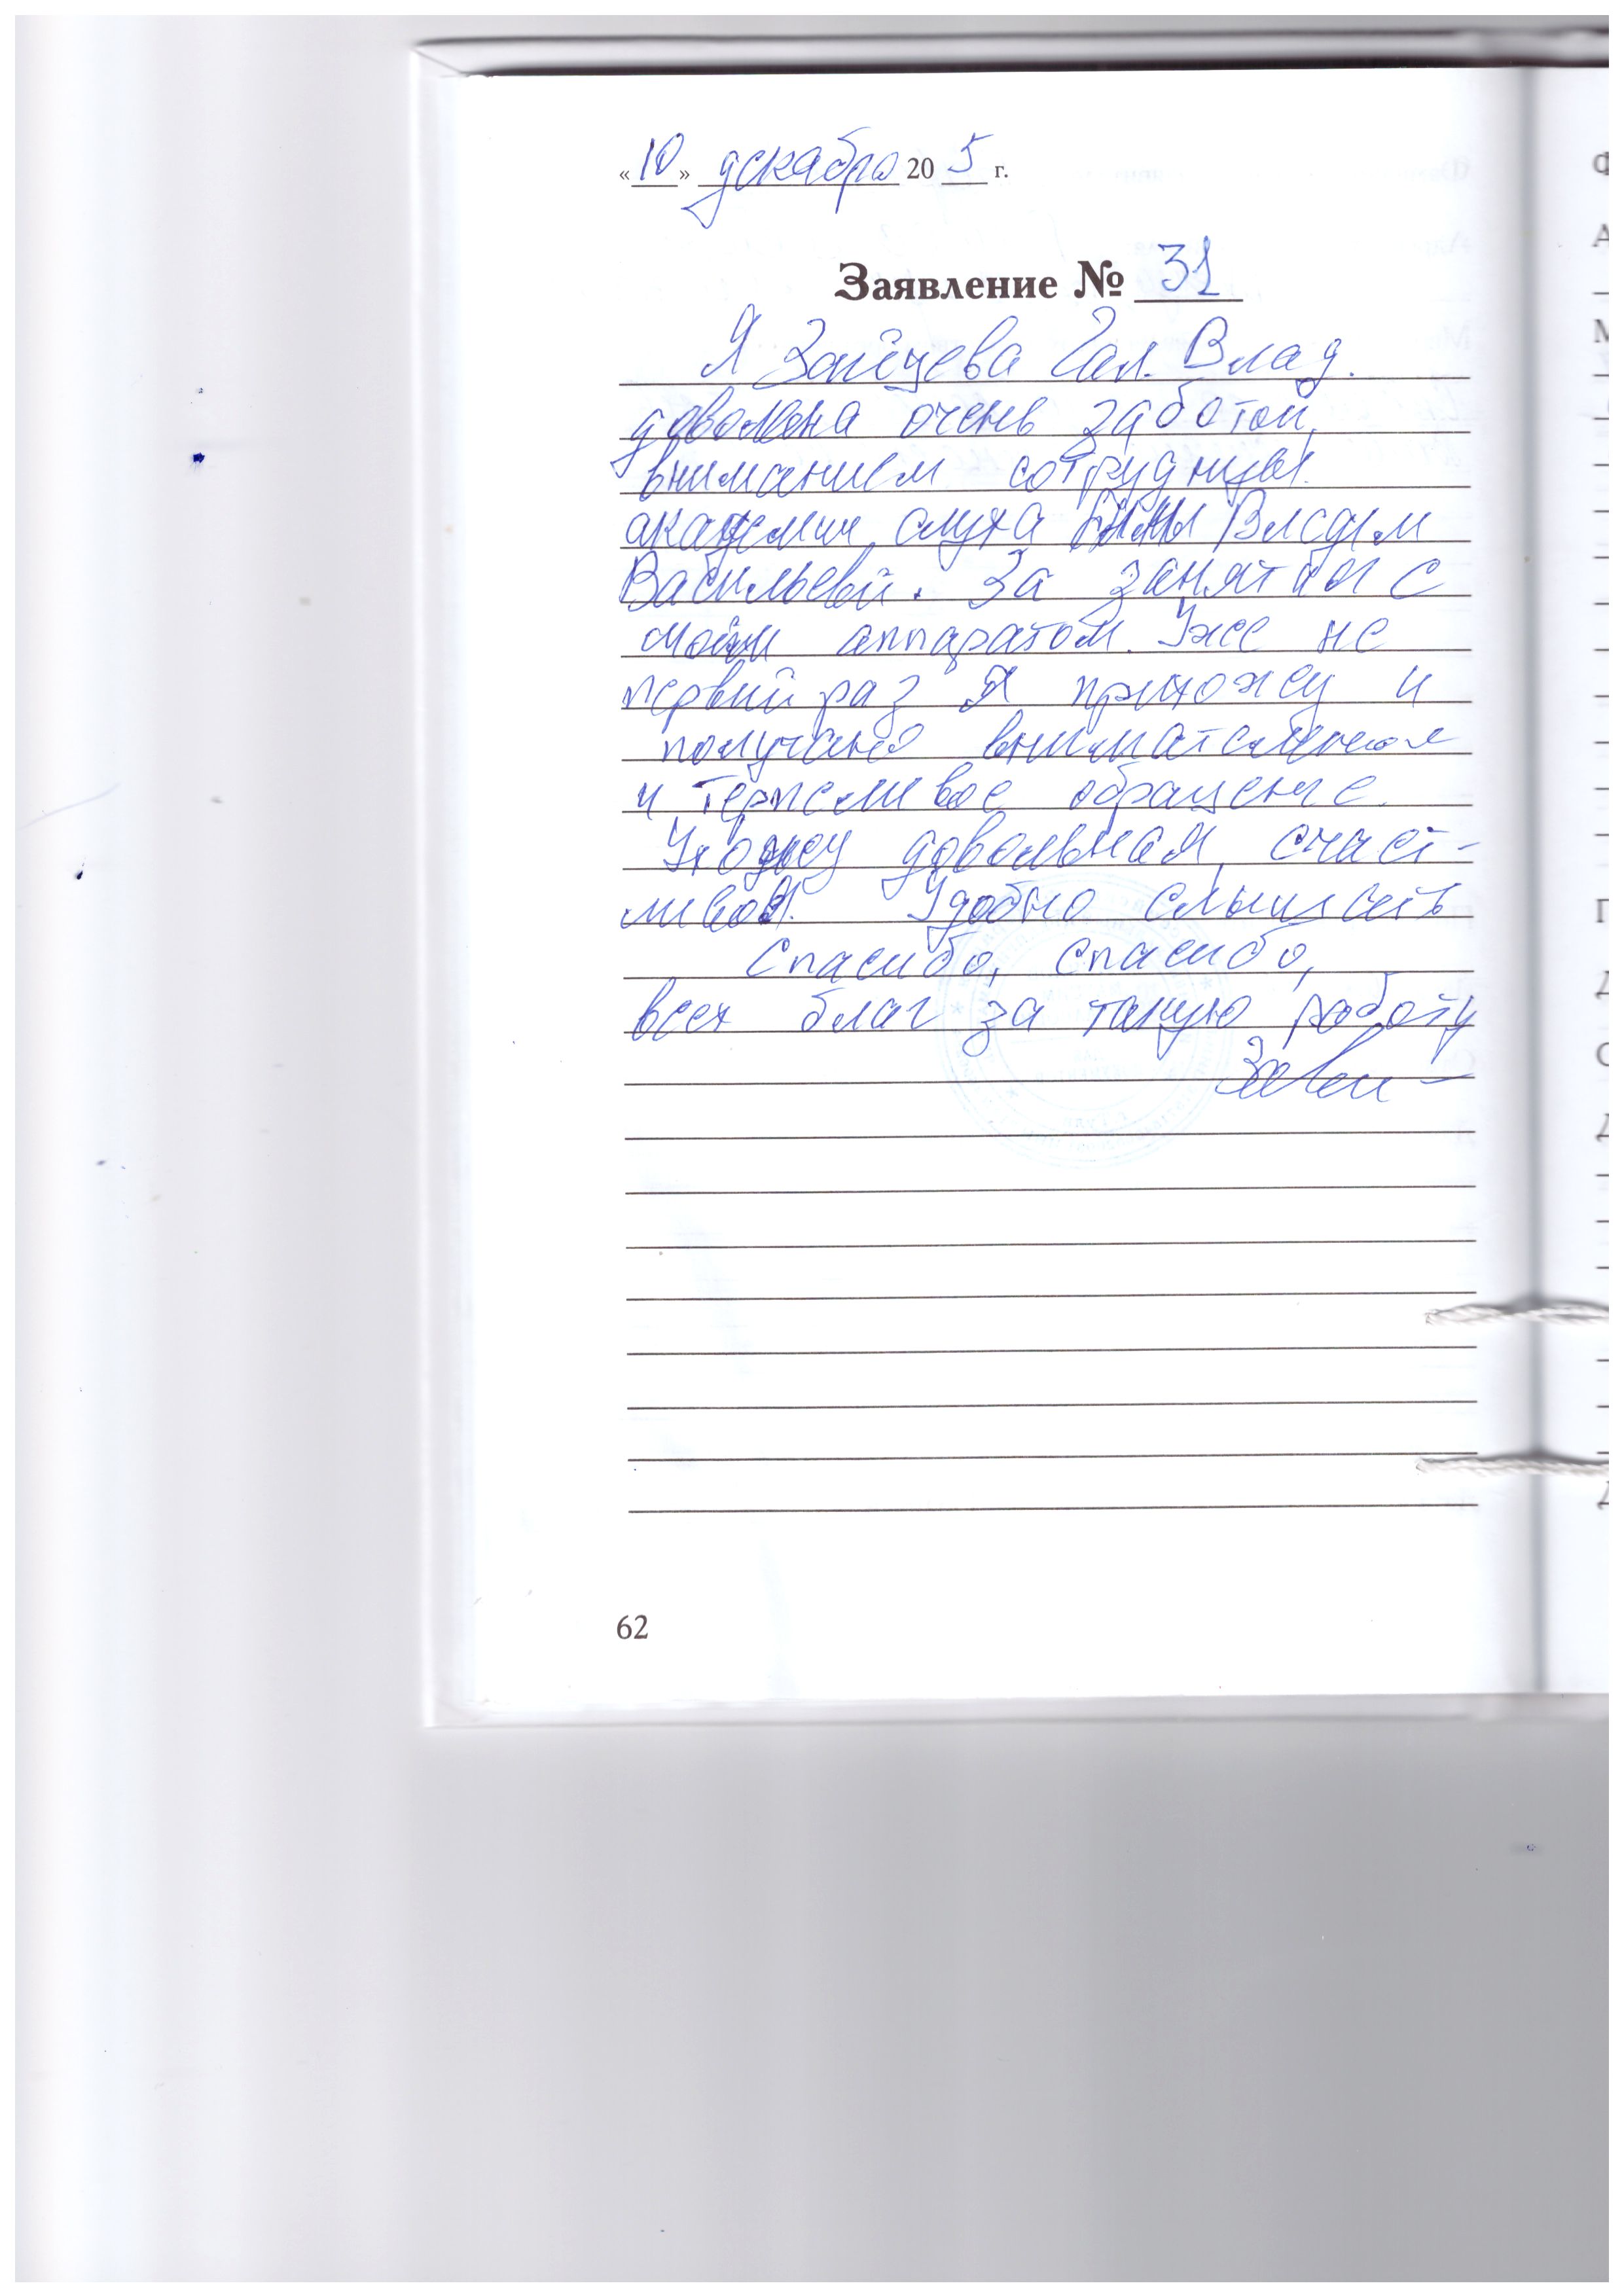 «10» декабря 20 5 г.
Заявление № 31
Я Зайцева Гал. Влад.
довольна очень заботой,
вниманием сотрудницы
академии слуха
Васильевой. За занятия с
моим аппаратом. Уже не
первый раз Я прихожу и
получаю внимательное
и терпеливое обращение.
Ухожу довольная, счаст-
ливая. Удобно слышать
Спасибо, спасибо,
всех благ за такую работу
62